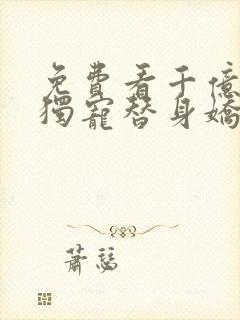 免費看千億
獨寵替身嬌
蕭瑟